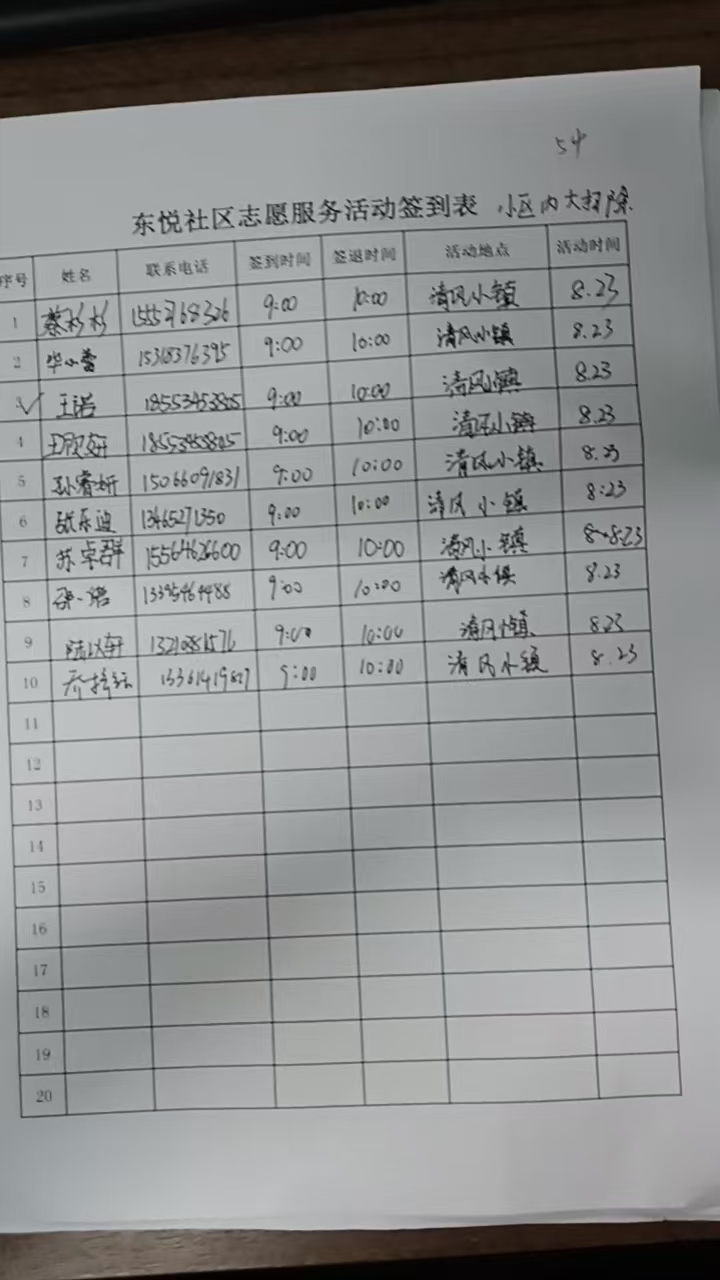 54
东悦社区志愿服务活动签到表 小区内大扫除
序号 姓名 联系电话 签到时间 签退时间 活动地点 活动时间
1 蔡杉杉 15552768326 9:00 10:00 清风小镇 8.23
2 毕小蕾 15318376395 9:00 10:00 清风小镇 8.23
3 王诺 9:00 10:00 清风小镇 8.23
4 9:00 10:00 清风小镇 8.23
5 孙睿妍 15066091831 9:00 10:00 清风小镇 8.23
6 张乐迪 13465271350 9:00 10:00 清风小镇 8:23
7 苏卓群 15564626600 9:00 10:00 清风小镇 8.23
8 9:00 10:00 清风小镇 8.23
9 陆以轩 9:00 10:00 清风小镇 8.23
10 9:00 10:00 清风小镇 8.23
11
12
13
14
15
16
17
18
19
20